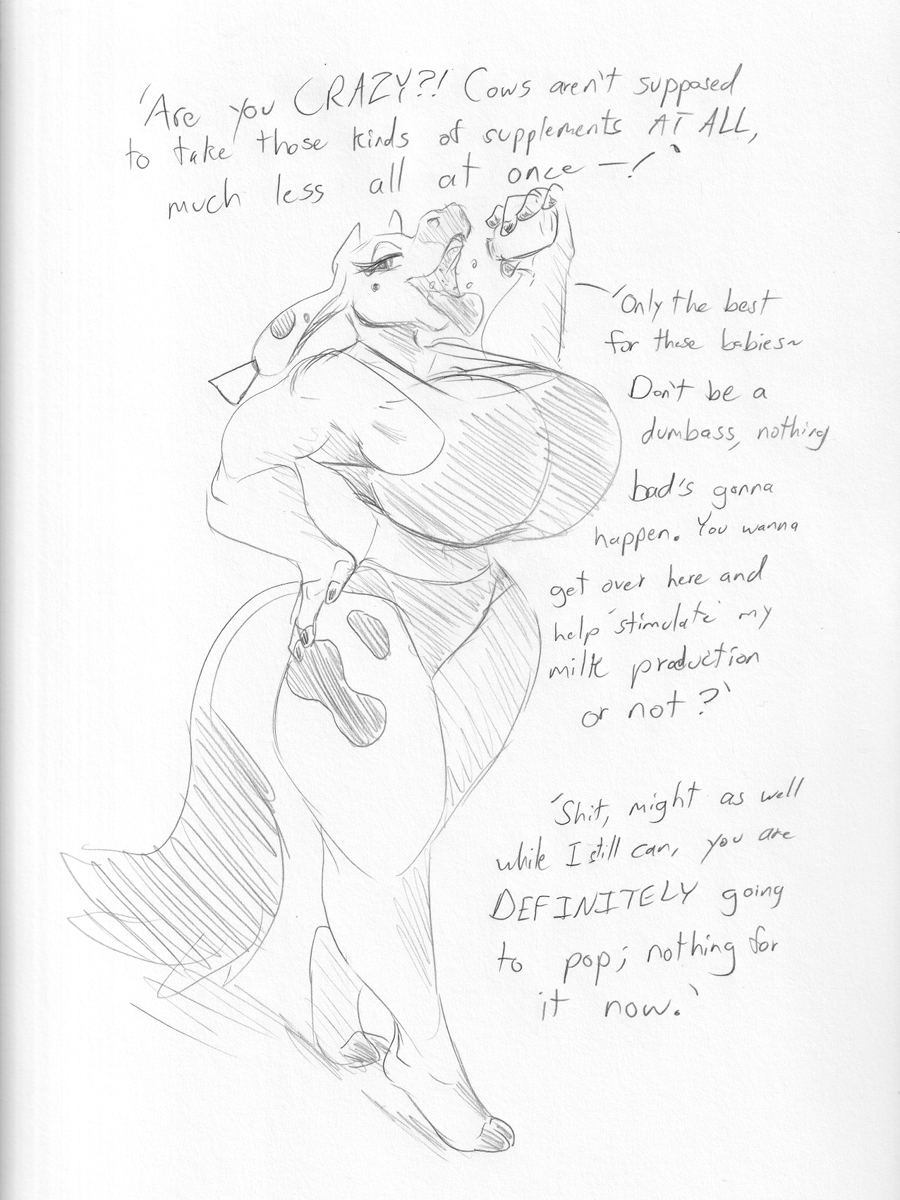 'Are you CRAZY?! Cows aren't supposed
to take those kinds of supplements AT ALL,
much less all at once —!'
'Only the best
for these babies~
Don't be a
dumbass, nothing
bad's gonna
happen. You wanna
get over here and
help 'stimulate' my
milk production
or not?'
'Shit, might as well
while I still can, you are
DEFINITELY going
to pop; nothing for
it now.'